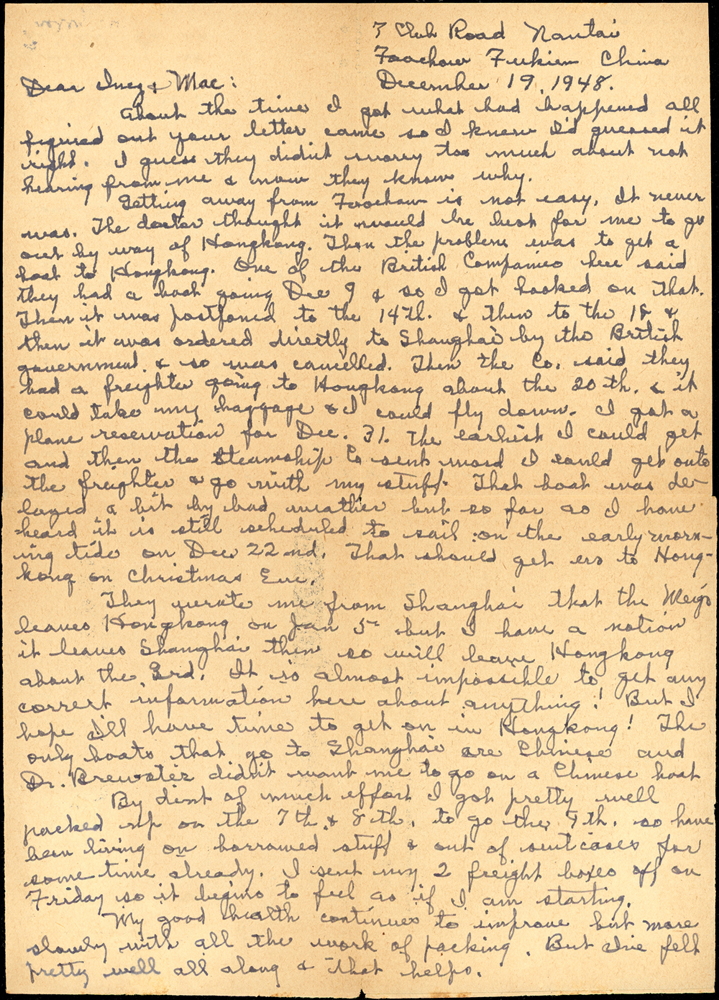 7 Club Road Nantai
Foochow Fukien China
December 19, 1948.
Dear Inez & Mac:
About the time I got what had happened all
figured out your letter came so I knew I'd guessed it
right. I guess they didn't worry too much about not
hearing from me & now they know why.
Getting away from Foochow is not easy. It never
was. The doctor thought it would be best for me to go
out by way of Hongkong. Then the problem was to get a
boat to Hongkong. One of the British Companies here said
they had a boat going Dec 9 & so I got booked on that.
Then it was postponed to the 14th. & then to the 18 &
then it was ordered directly to Shanghai by the British
government. & so was cancelled. Then the Co. said they
had a freighter going to Hongkong about the 20th. & it
could take my baggage & I could fly down. I got a
plane reservation for Dec. 31. the earliest I could get
and then the Steamship Co sent word I could get onto
the freighter & go with my stuff. That boat was de-
layed a bit by bad weather but so far as I have
heard it is still scheduled to sail on the early morn-
ing tide on Dec 22nd. That should get us to Hong-
kong on Christmas Eve.
They wrote me from Shanghai that the Meigs
leaves Hongkong on Jan 5 but I have a notion
it leaves Shanghai then so will leave Hongkong
about the 3rd. It is almost impossible to get any
correct information here about anything! But I
hope I'll have time to get on in Hongkong! The
only boats that go to Shanghai are Chinese and
Dr. Brewster didn't want me to go on a Chinese boat
By dint of much effort I got pretty well
packed up on the 7th & 8th. to go the 9th. so have
been living on borrowed stuff & out of suitcases for
some time already. I sent my 2 freight boxes off on
Friday so it begins to feel as if I am starting.
My good health continues to improve but more
slowly with all the work of packing. But I've felt
pretty well all along & that helps.